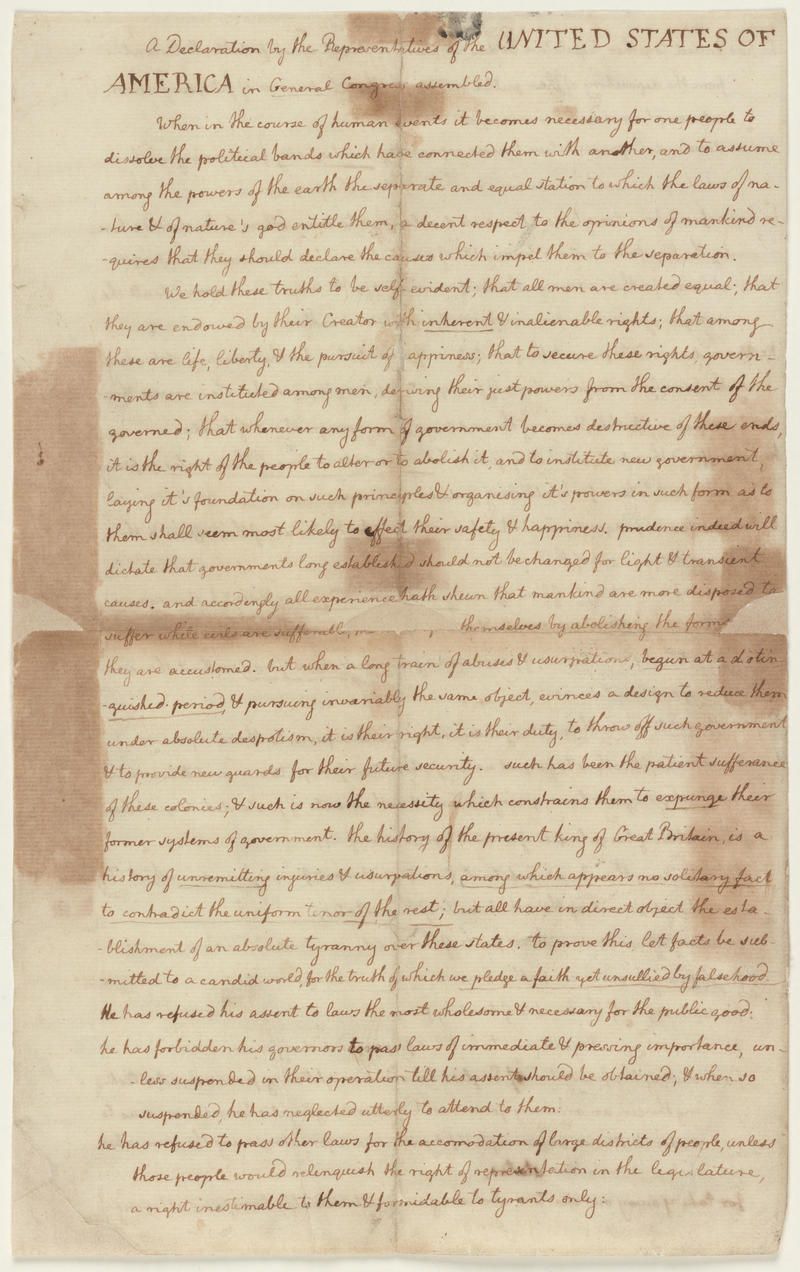 A Declaration by the Representatives of the UNITED STATES OF
AMERICA in General Congress assembled.
When in the course of human events it becomes necessary for one people to
dissolve the political bands which have connected them with another, and to assume
among the powers of the earth the separate and equal station to which the laws of na-
-ture & of nature's god entitle them, a decent respect to the opinions of mankind re-
-quires that they should declare the causes which impel them to the separation.
We hold these truths to be self evident; that all men are created equal; that
they are endowed by their Creator with inherent & inalienable rights; that among
these are life, liberty, & the pursuit of appiness; that to secure these rights, govern-
-ments are instituted among men, deriving their just powers from the consent of the
governed; that whenever any form of government becomes destructive of these ends,
it is the right of the people to alter or to abolish it, and to institute new government,
laying it's foundation on such principles & organising it's powers in such form as to
them shall seem most likely to effect their safety & happiness. prudence indeed will
dictate that governments long established should not be changed for light & transient
causes. and accordingly all experience hath shewn that mankind are more disposed to
suffer while evils are sufferable, themselves by abolishing the forms
they are accustomed. but when a long train of abuses & usurpations, begun at a distin-
-guished period, & pursuing invariably the same object, evinces a design to reduce them
under absolute despotism, it is their right, it is their duty, to throw off such government
& to provide new guards for their future security. such has been the patient sufferance
of these colonies; & such is now the necessity which constrains them to expunge their
former systems of government. the history of the present king of Great Britain, is a
history of unremitting injuries & usurpations, among which appears no solitary fact
to contradict the uniform tenor of the rest; but all have in direct object the esta-
-blishment of an absolute tyranny over these states. to prove this let facts be sub-
-mitted to a candid world, for the truth of which we pledge a faith yet unsullied by falsehood.
He has refused his assent to laws the most wholesome & necessary for the public good:
he has forbidden his governors to pass laws of immediate & pressing importance, un-
-less suspended in their operation till his assent should be obtained; & when so
suspended, he has neglected utterly to attend to them:
he has refused to pass other laws for the accomodation of large districts of people, unless
those people would relinquish the right of representation in the legislature,
a right inestimable to them & formidable to tyrants only: